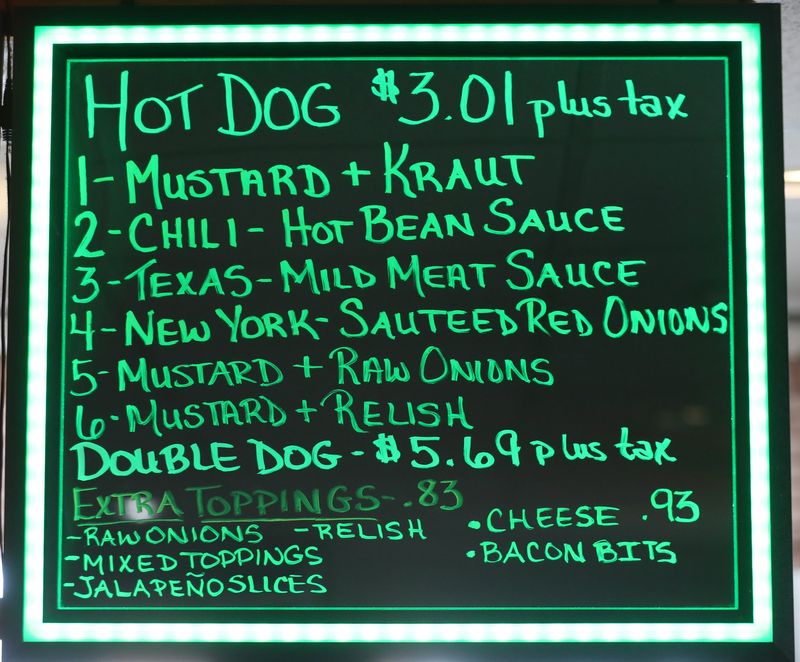 HOT DOG $3.01 plus tax
1-MUSTARD + KRAUT
2-CHILI- HOT BEAN SAUCE
3-TEXAS-MILD MEAT SAUCE
4-NEW YORK-SAUTEED RED ONIONS
5-MUSTARD + RAW ONIONS
6-MUSTARD + RELISH
DOUBLE DOG-$5.69 plus tax
EXTRA TOPPINGS-.83
-RAW ONIONS -RELISH
-MIXED TOPPINGS
-JALAPEÑO SLICES
•CHEESE .93
•BACON BITS